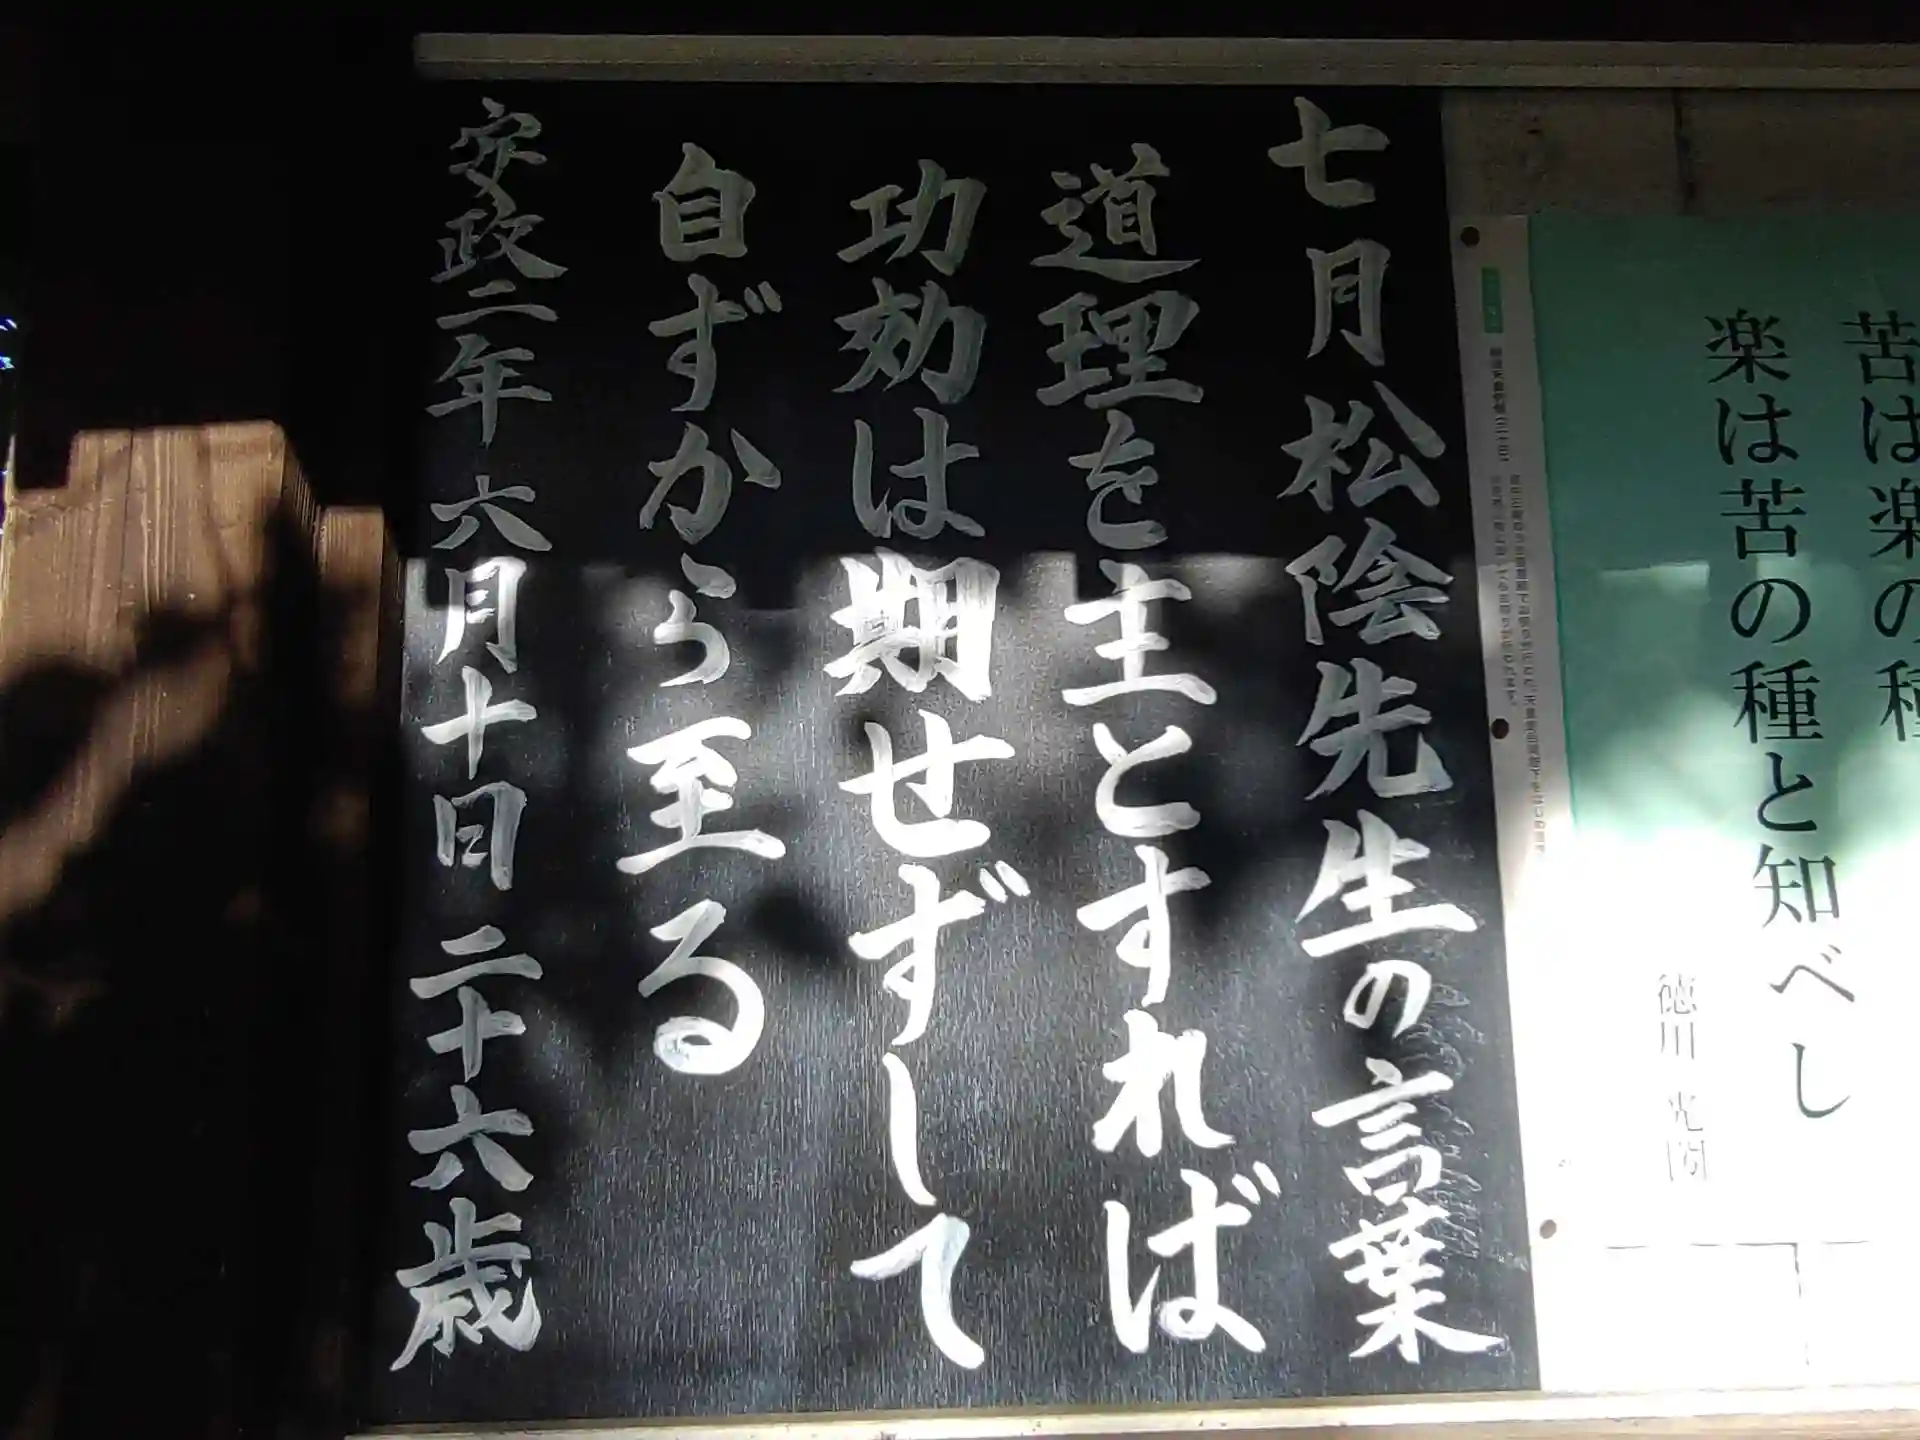 苦は楽の種
楽は苦の種と知べし
徳川 光圀
七月松陰先生の言葉
道理を主とすれば
功効は期せずして
自ずから至る
安政二年 六月十日 二十六歳